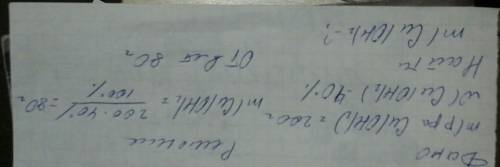 Дано
m(р-ра Cu(OH)₂) = 200г
w(Cu(OH)₂) - 40%
Найти
m(Cu(OH)₂ - ?
Решение
m(Cu(OH)₂ = 200·40% / 100% = 80г
Ответ 80г